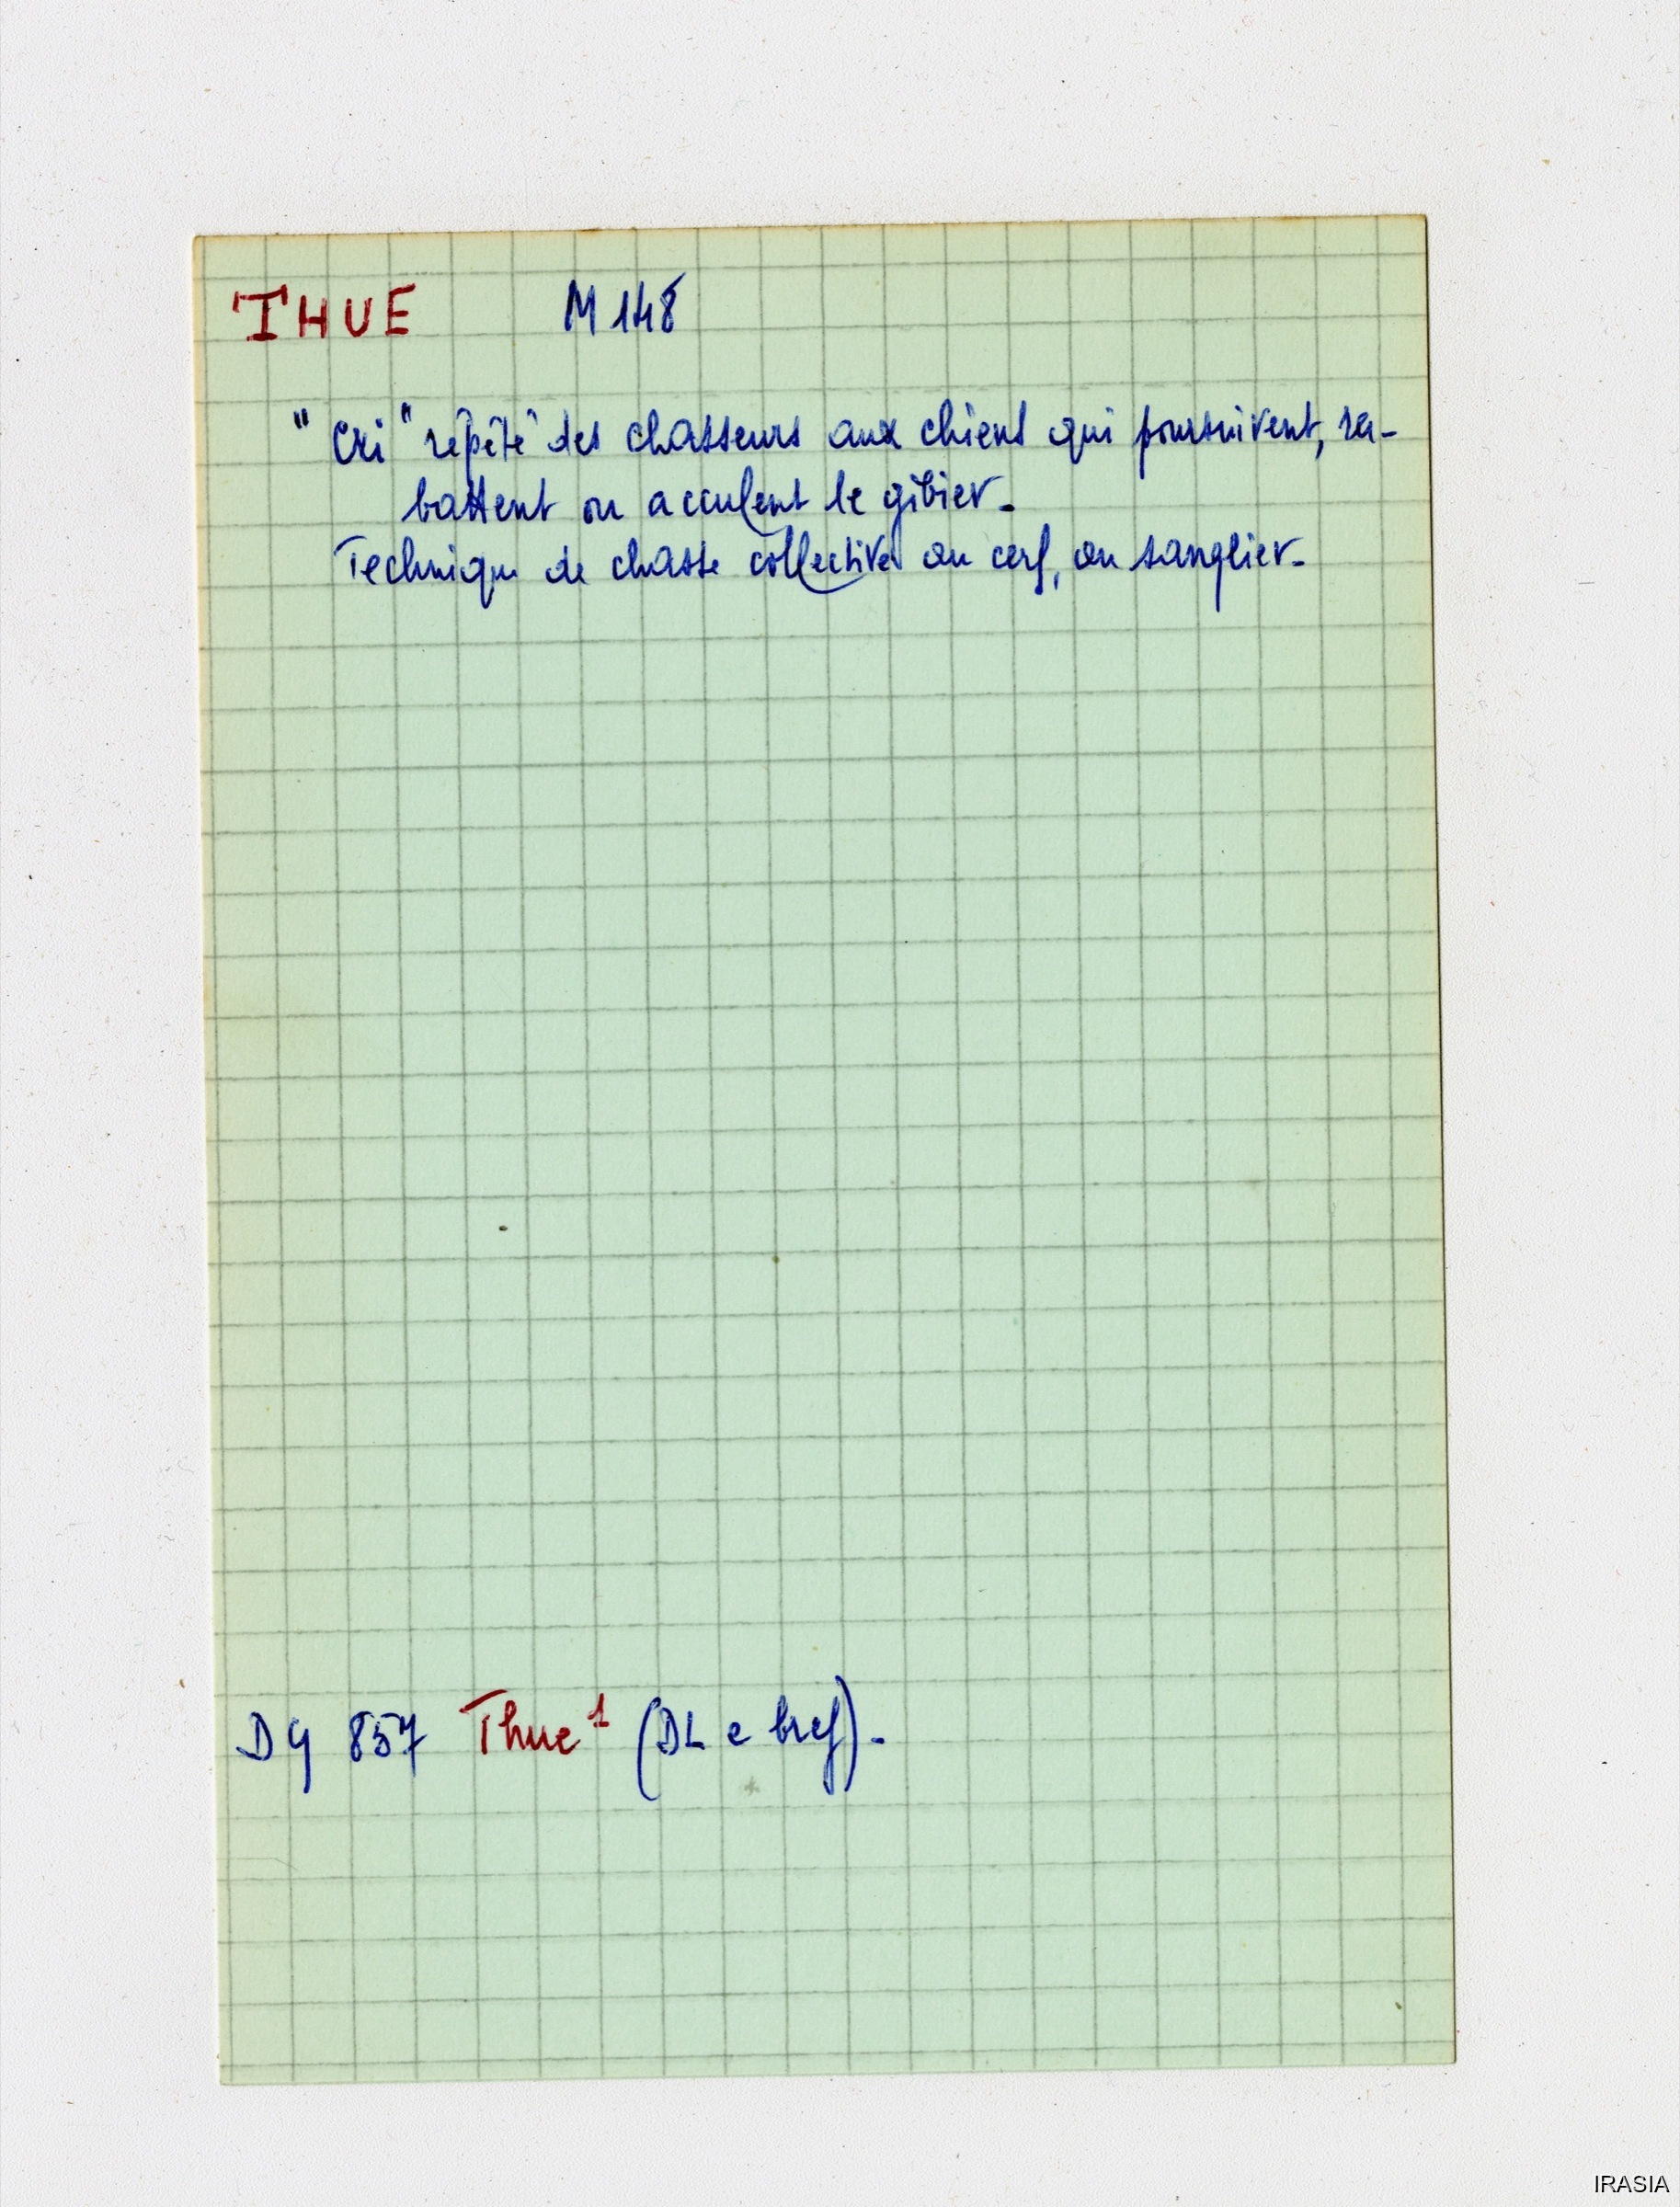 THUE M 148
" Cri " répété " des chasseurs aux chiens qui poursuivent, ra-
battent ou acculent le gibier.
Technique de chasse collective au cerf, au sanglier.
DG 857 Thue¹ (DL e bref).
IRASIA